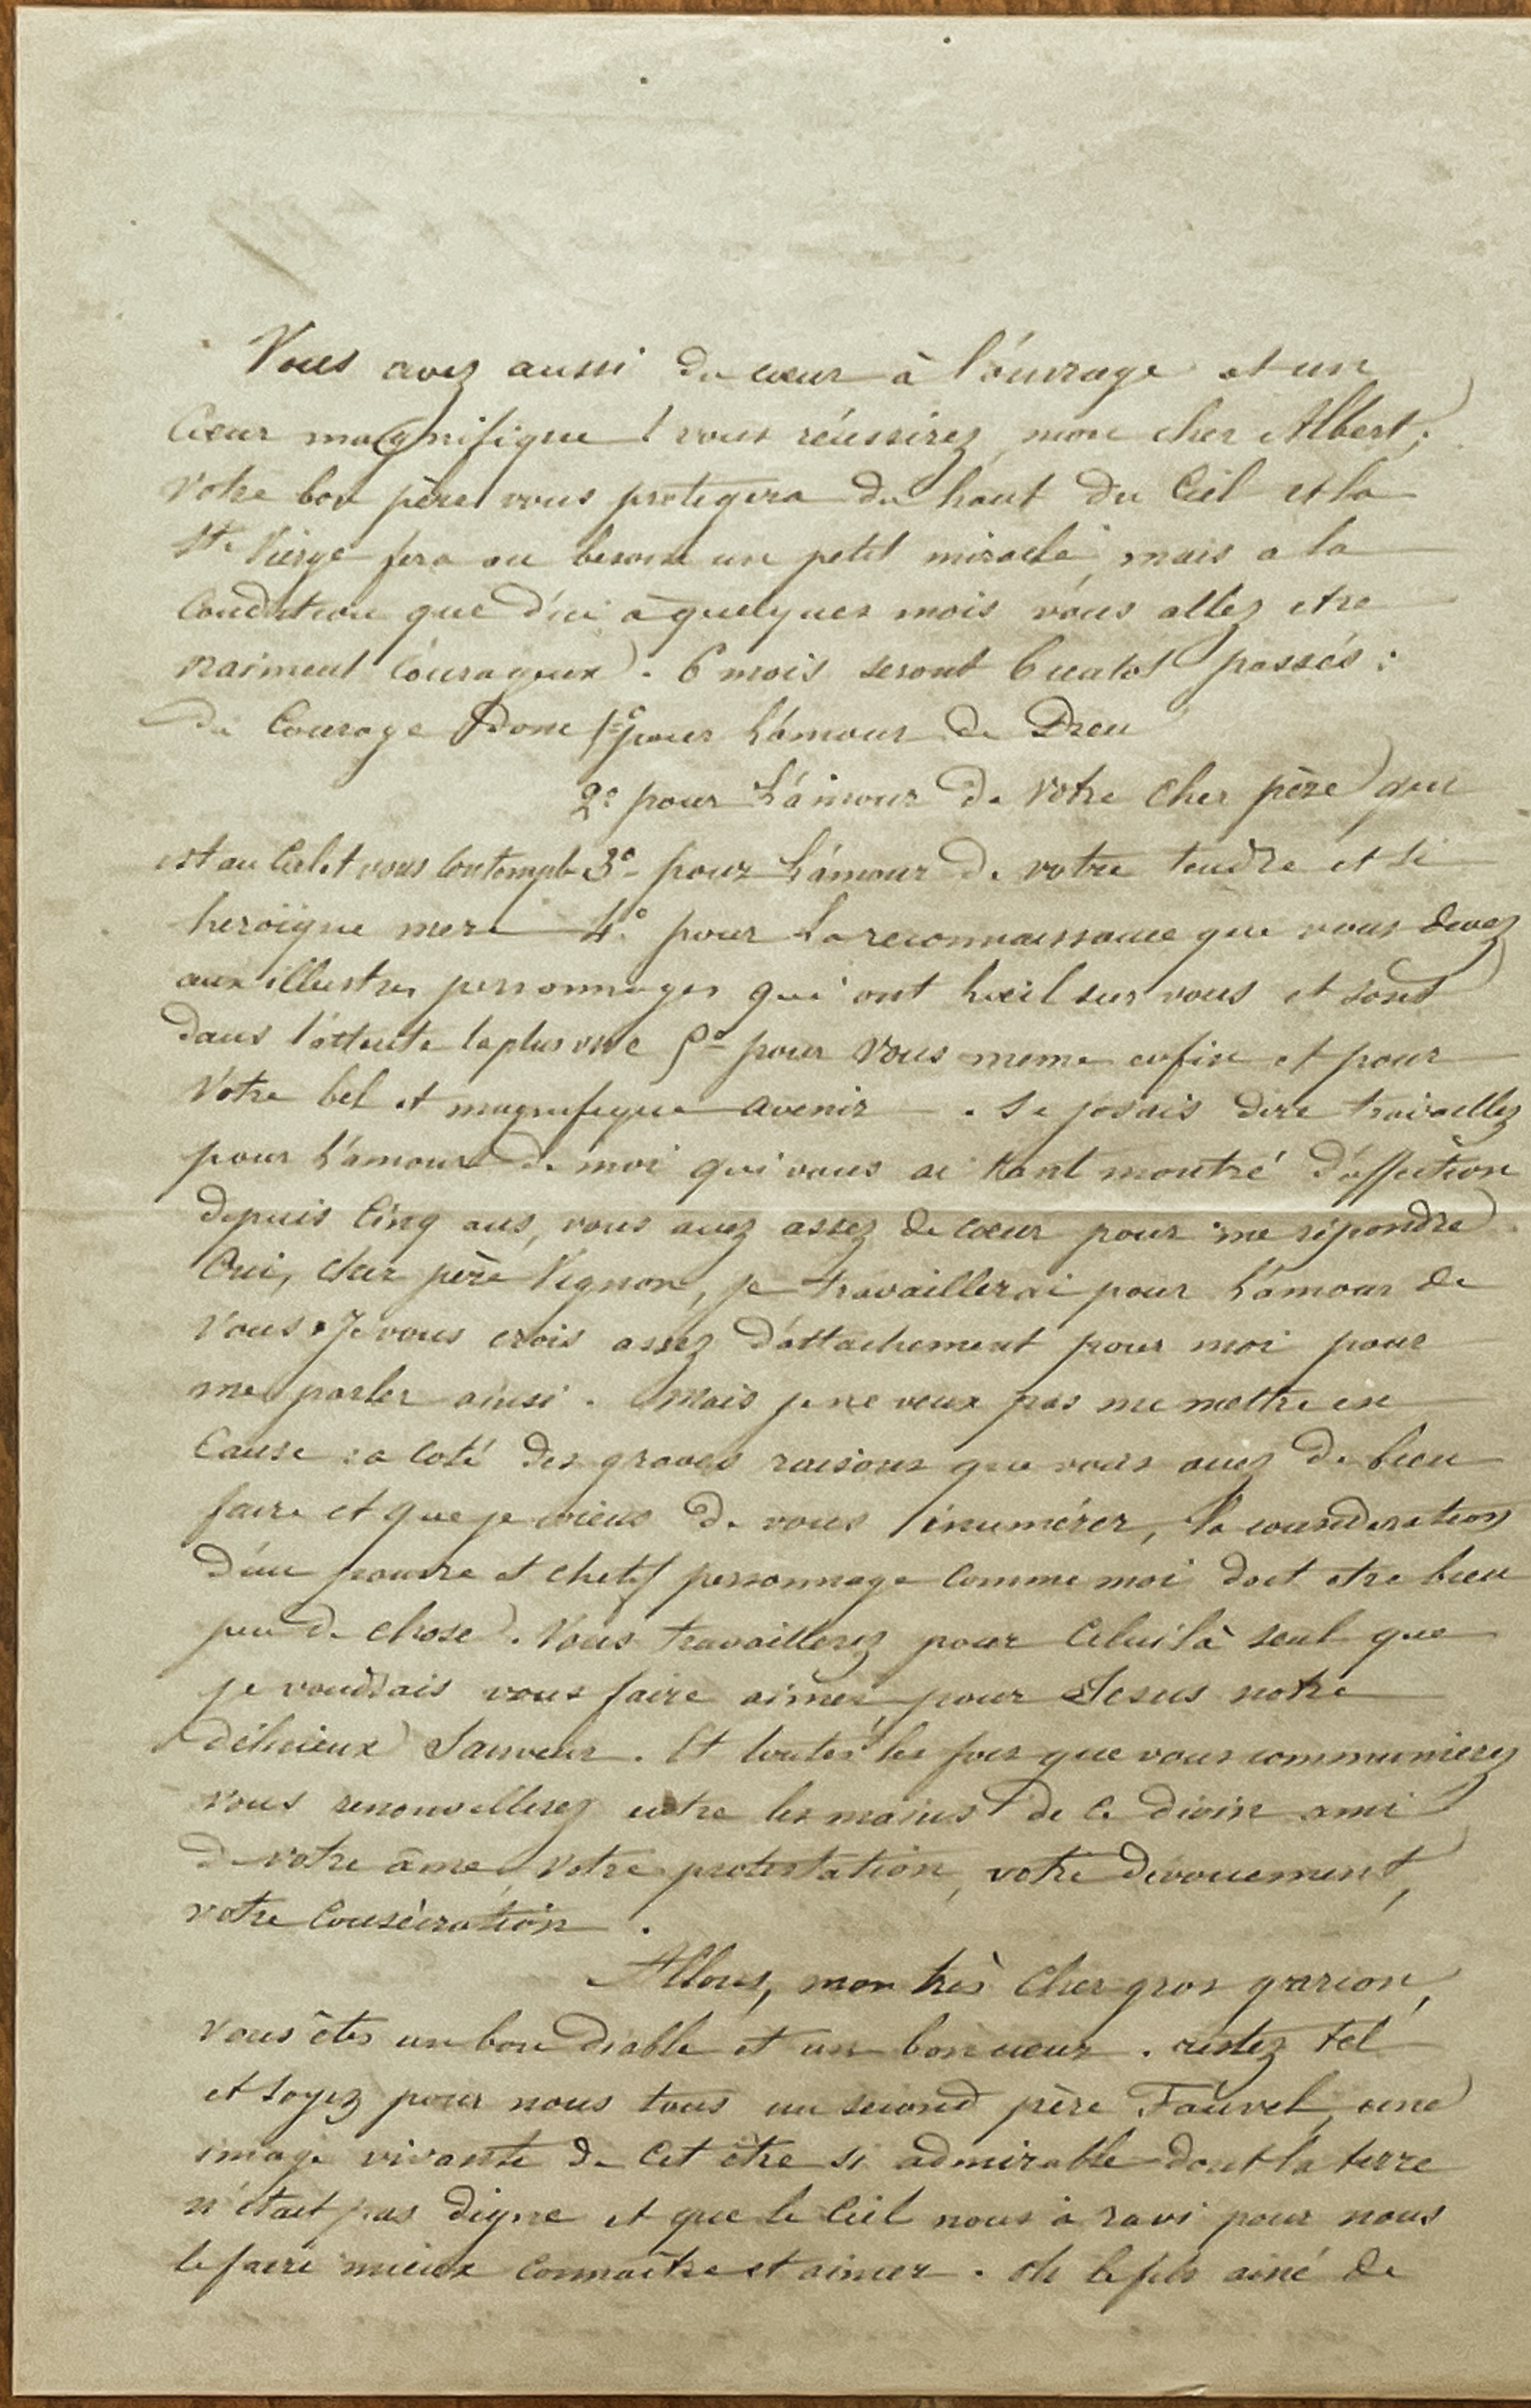 Vous avez aussi du cœur à l'ouvrage et un
Cœur magnifique ! vous réussirez, mon cher Albert,
votre bon père vous protegera du haut du Ciel et la
Ste Vierge fera au besoin un petit miracle, mais a la
Condition que d'ici à quelques mois vous allez etre
vraiment Courageux. 6 mois seront bientot passés :
Du Courage Donc 1º pour l'amour de Dieu
2º pour l'amour de votre Cher père qui
est au Ciel et vous Contemple 3º pour l'amour de votre tendre et si
heroïque mere 4º pour la reconnaissance que vous devez
aux illustres personnages qui ont l'œil sur vous et sont
dans l'attente la plus vive 5º pour vous meme enfin et pour
Votre bel et magnifique avenir . Si j'osais dire travaillez
pour l'amour de moi qui vous ai tant montré d'affection
depuis Cinq ans, vous avez assez de cœur pour me répondre
Oui, cher père Vignon, je travaillerai pour l'amour de
Vous. Je vous crois assez d'attachement pour moi pour
me parler ainsi. Mais je ne veux pas me mettre en
Cause : a coté des graves raisons que vous avez de bien
faire et que je viens de vous énumérer, la consideration
d'un pauvre et chetif personnage Comme moi doit etre bien
peu de chose. Vous travaillerez pour Celui là seul que
je voudrais vous faire aimer, pour Jesus notre
délicieux Sauveur. Et toutes les fois que vous communierez
vous renouvellerez entre les mains de ce divin ami
de votre âme, votre protestation, votre dévouement,
votre Consécration .
Allons, mon très Cher gros garcon,
Vous êtes un bon diable et un bon cœur. restez tel
et soyez pour nous tous un second père Fauvel, une
image vivante de Cet être si admirable dont la terre
n'était pas digne et que le Ciel nous à ravi pour nous
le faire mieux Connaître et aimer. Oh le fils ainé de